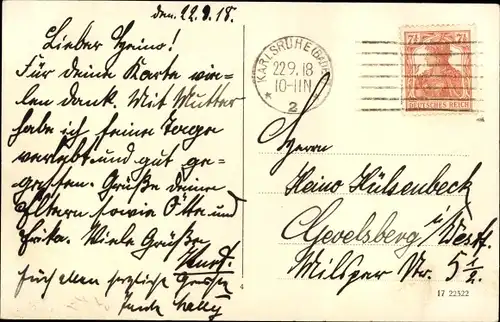 den 22.9.18.
Lieber Heino!
Für deine Karte vie-
len dank. Mit Mutter
habe ich feine Tage
verlebt und gut ge-
gessen. Grüße deine
Eltern sowie Otte und
Erika. Viele Grüße
Kurt.
Euch allen herzliche Grüsse
Tante
KARLSRUHE (BADEN)
22.9.18
10-11N
* 2
7½ 7½
DEUTSCHES REICH
Herrn
Heino Hülsenbeck
Gevelsberg i/Westf.
Milsper Str. 5 1/2.
17 22522